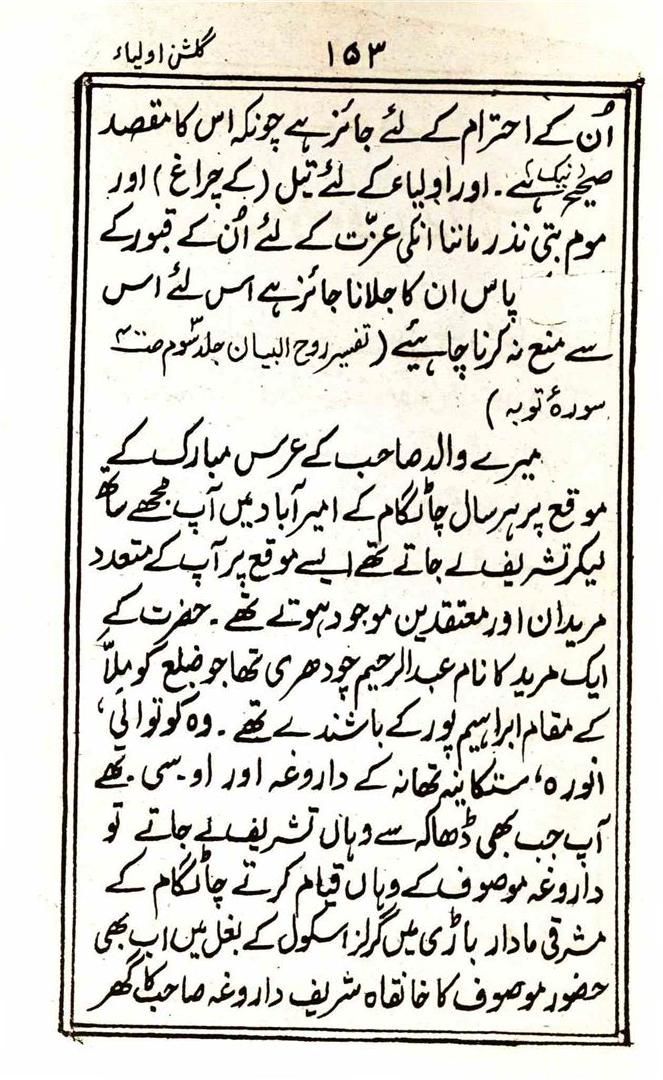 ۱۵۳ گلشن اولیاء
اُن کے احترام کے لئے جائز ہے چونکہ اس کا مقصد
صحیح نیک ہے۔ اور اولیاء کے لئے تیل (کے چراغ) اور
موم بتی نذر ماننا انکی عزّت کے لئے اُن کے قبور کے
پاس ان کا جلانا جائز ہے اس لئے اس
سے منع نہ کرنا چاہیئے (تفسیر روح البیان جلد سوم صت۴
سورۂ توبہ)
میرے والد صاحب کے عرس مبارک کے
موقع پر ہر سال چاٹگام کے امیرآباد میں آپ مجھے ساتھ
لیکر تشریف لے جاتے تھے ایسے موقع پر آپ کے متعدد
مریدان اور معتقدین موجود ہوتے تھے۔ حضرت کے
ایک مرید کا نام عبدالرحیم چودھری تھا جو ضلع کومِلّا
کے مقام ابراہیم پور کے باشندے تھے۔ وہ کوتوالی،
انورہ، ستکانیہ تھانہ کے داروغہ اور او۔سی۔ تھے
آپ جب بھی ڈھاکہ سے وہاں تشریف لے جاتے تو
داروغہ موصوف کے وہاں قیام کرتے چاٹگام کے
مشرقی مادار باڑی میں گرلز اسکول کے بغل میں اب بھی
حضور موصوف کا خانقاہ شریف داروغہ صاحب کا گھر